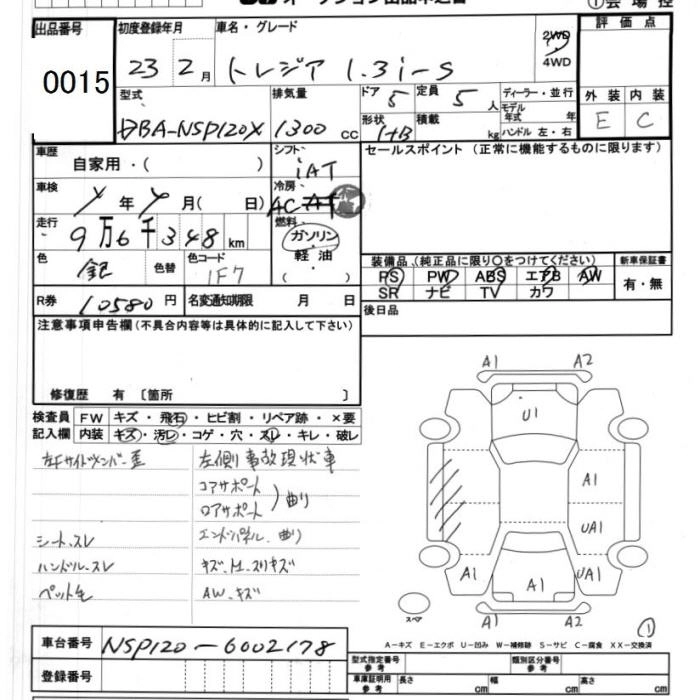 出品番号 初度登録年月 車名・グレード 2WD 4WD 評価点
0015 23 2月 トレジア 1.3i-S
型式 排気量 ドア 5 定員 5人 ディーラー・並行 外装 内装
DBA-NSP120X 1300cc 形状 1+B 積載 kg モデル年式 年 ハンドル 左・右 E C
車歴 自家用・( ) シフト iAT セールスポイント (正常に機能するものに限ります)
車検 年 月( 日) 冷房 AC
走行 9万6千348km 燃料 ガソリン・軽油・( )
色 銀 色替 色コード 1F7
装備品 (純正品に限り○をつけてください) 新車保証書
PS PW ABS エアB AW 有・無
SR ナビ TV カワ
R券 10580円 名変通知期限 月 日 後日品
注意事項申告欄(不具合内容等は具体的に記入して下さい)
修復歴 有〔箇所 〕
検査員記入欄 FW キズ・飛石・ヒビ割・リペア跡・×要
内装 キズ・汚レ・コゲ・穴・スレ・キレ・破レ
左Fサイドメンバー歪 左側事故現状車
コアサポート
ロアサポート 曲り
シート、スレ エンドパネル、曲り
ハンドル、スレ
ペット毛 AW、キズ
A1 A2
U1
A1
UA1
A1 A1 UA1
スペア A1 A2
①
A−キズ E−エクボ U−凹み W−補修跡 S−サビ C−腐食 XX−交換済
車台番号 NSP120-6002178
登録番号
型式指定番号 参考 類別区分番号 参考
車庫証明用 参考 長さ cm 幅 cm 高さ cm